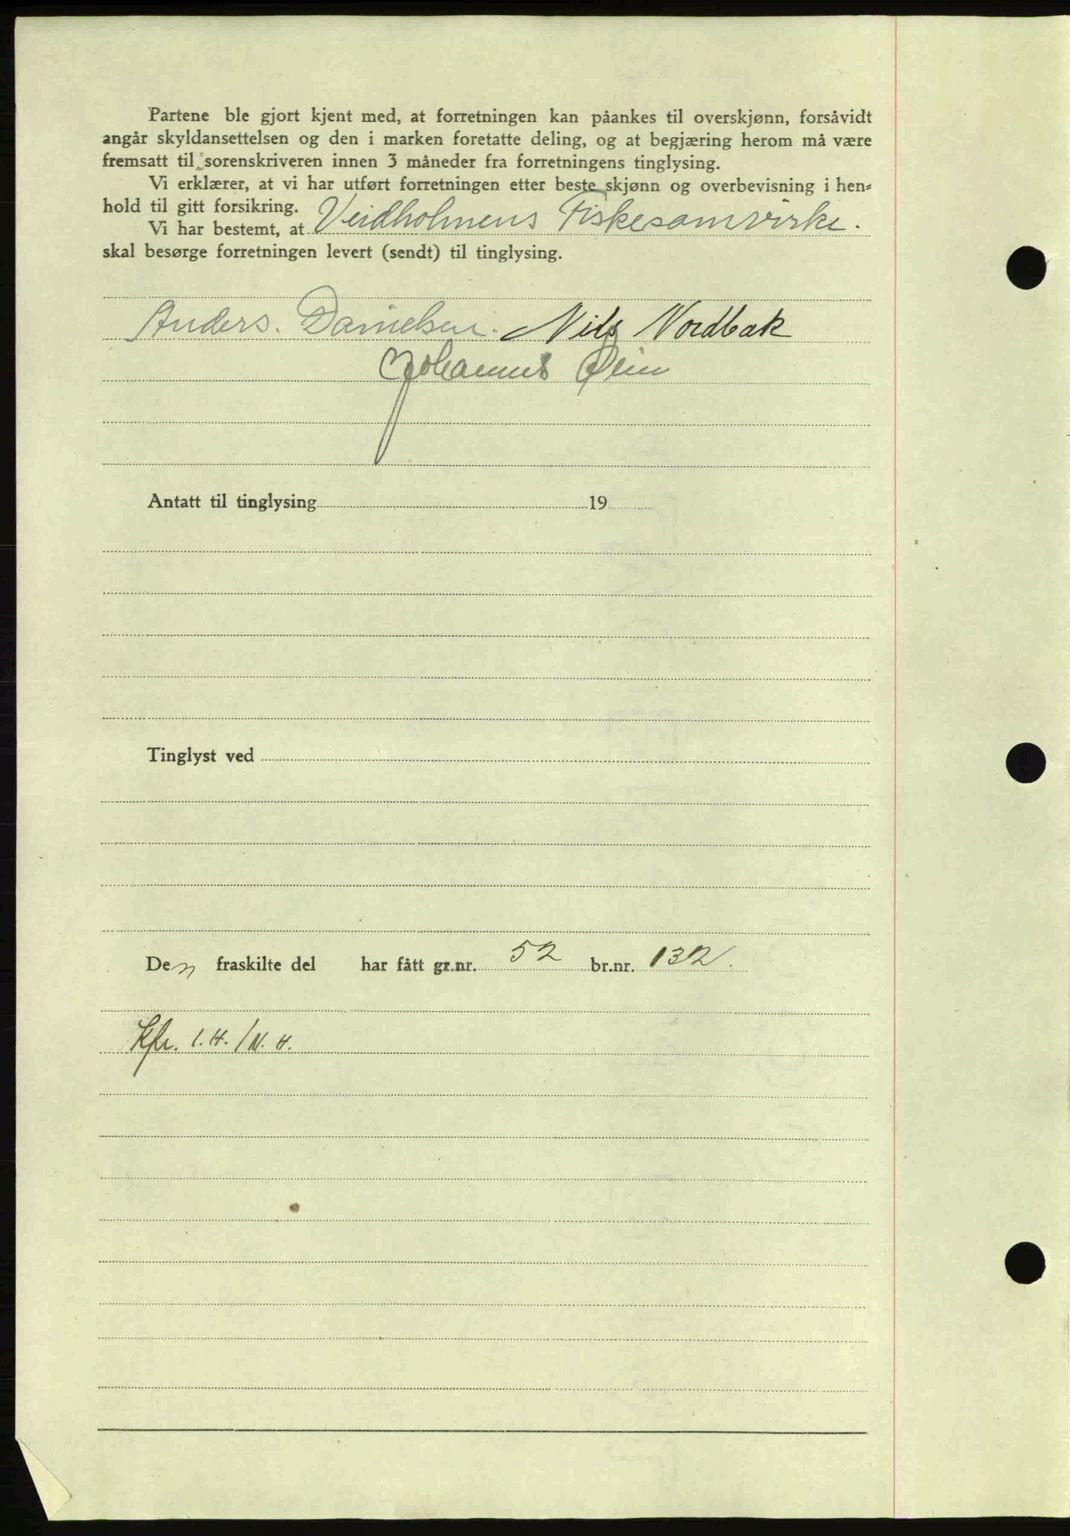 Partene ble gjort kjent med, at forretningen kan påankes til overskjønn, forsåvidt
angår skyldansettelsen og den i marken foretatte deling, og at begjæring herom må være
fremsatt til sorenskriveren innen 3 måneder fra forretningens tinglysing.
Vi erklærer, at vi har utført forretningen etter beste skjønn og overbevisning i hen-
hold til gitt forsikring.
Vi har bestemt, at Veidholmens Fiskesamvirke.
skal besørge forretningen levert (sendt) til tinglysing.
Anders. Danielsen. Nils Nordbak
Johannes
Antatt til tinglysing 19
Tinglyst ved
Den fraskilte del har fått gr.nr. 52 br.nr. 132.
Kfr. I.H./N.H.